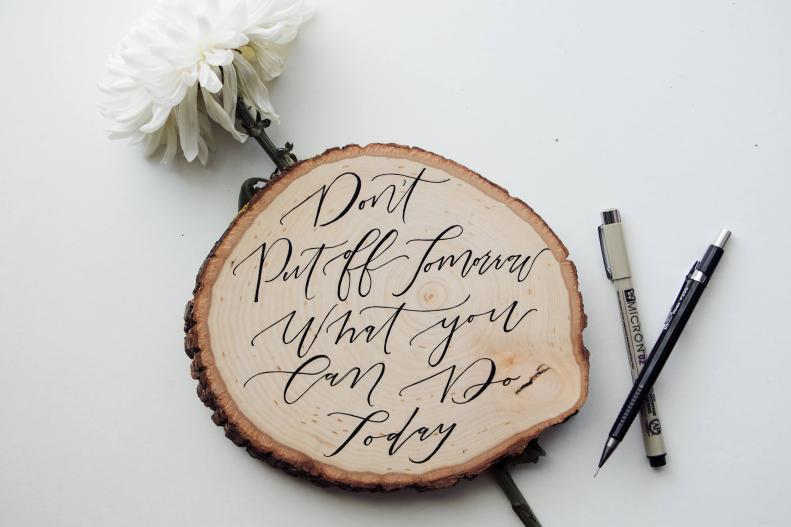 Don't
Put off Tomorrow
What you
Can Do
Today
MICRON 02